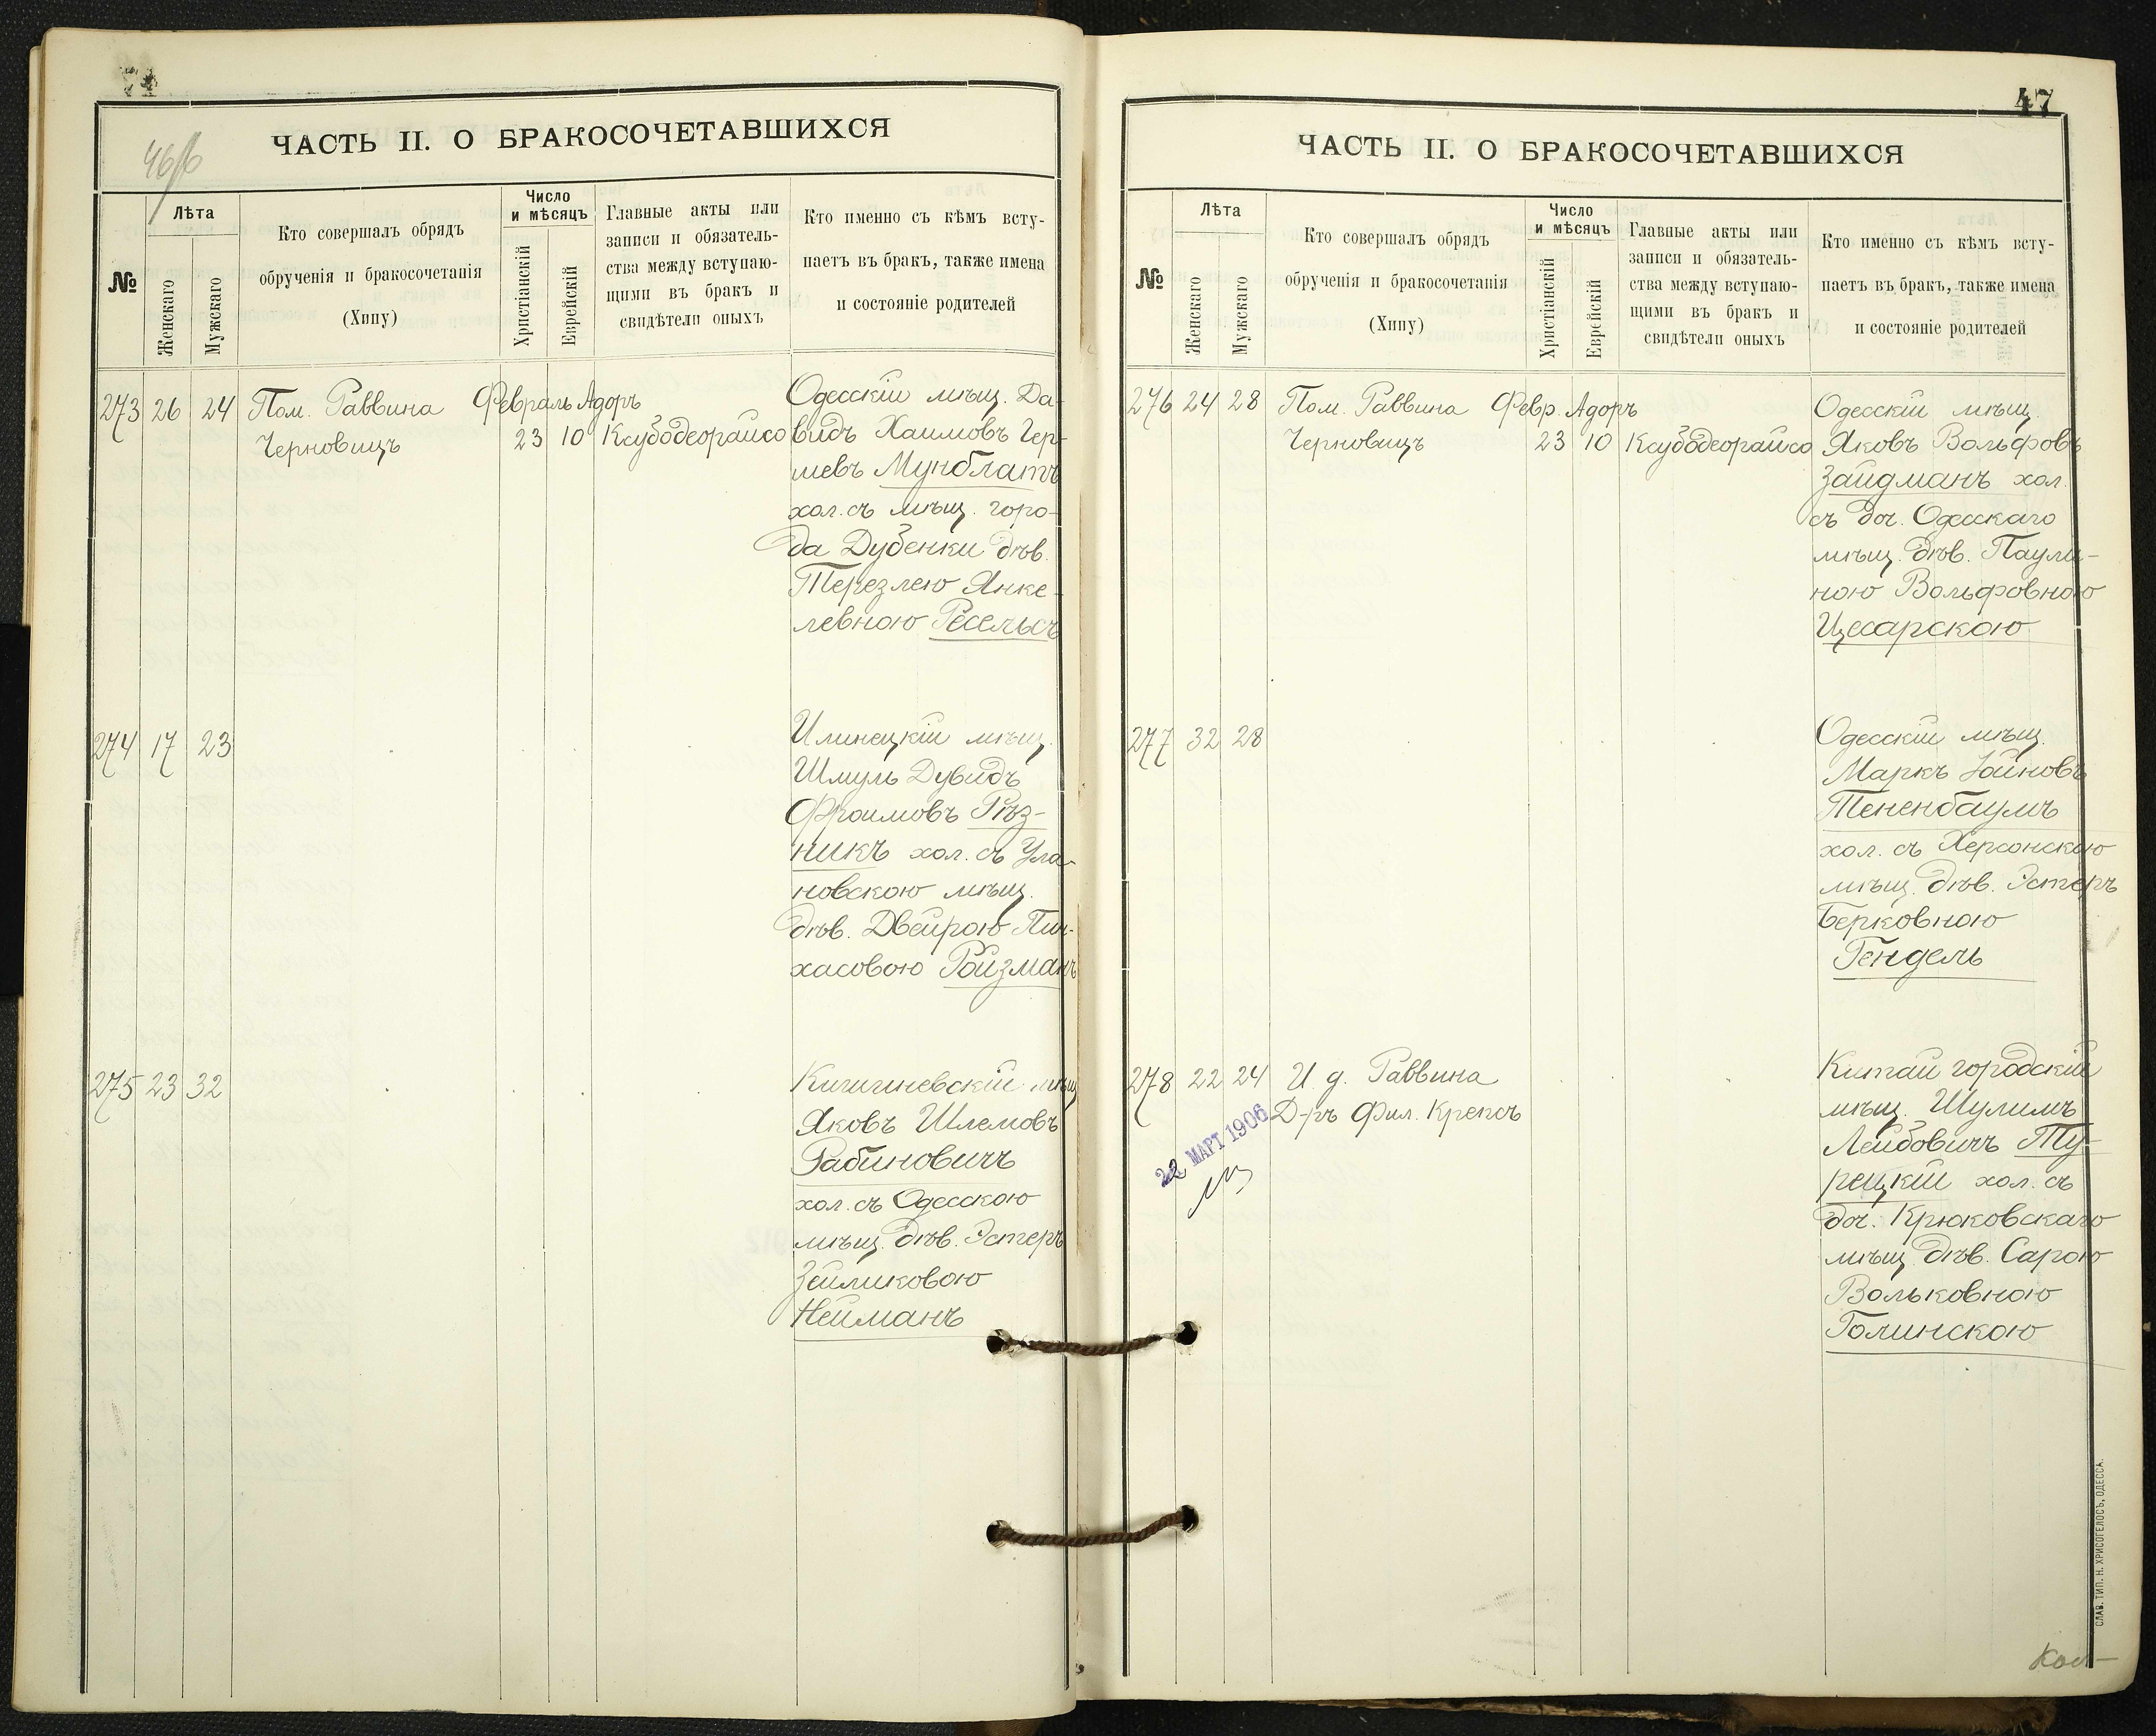 46/б
ЧАСТЬ II. О БРАКОСОЧЕТАВШИХСЯ
№
Лѣта
Женскаго
Мужскаго
Кто совершалъ обрядъ
обрученія и бракосочетанія
(Хипу)
Число
и мѣсяцъ
Христіанскій
Еврейскій
Главные акты или
записи и обязатель-
ства между вступаю-
щими въ бракъ и
свидѣтели оныхъ
Кто именно съ кѣмъ всту-
паетъ въ бракъ, также имена
и состояніе родителей
273 26 24 Пом. Раввина Февраль Адоръ
Черновицъ 23 10 Ксубодеорайсо
Одесскій мѣщ. Да-
видъ Хаимовъ Гер-
шевъ Мунблатъ
хол. съ мѣщ. горо-
да Дубенки дѣв.
Терезлею Янке-
левною Ресельсъ
274 17 23
Илинецкій мѣщ.
Шмуль Дувидъ
Фроимовъ Рѣз-
никъ хол. съ Ула-
новскою мѣщ.
дѣв. Двейрою Пин-
хасовою Ройзманъ
275 23 32
Кишиневскій мѣщ
Яковъ Шлемовъ
Рабиновичъ
хол. съ Одесскою
мѣщ. дѣв. Эстеръ
Зейликовою
Нейманъ
47
ЧАСТЬ II. О БРАКОСОЧЕТАВШИХСЯ
№
Лѣта
Женскаго
Мужскаго
Кто совершалъ обрядъ
обрученія и бракосочетанія
(Хипу)
Число
и мѣсяцъ
Христіанскій
Еврейскій
Главные акты или
записи и обязатель-
ства между вступаю-
щими въ бракъ и
свидѣтели оныхъ
Кто именно съ кѣмъ всту-
паетъ въ бракъ, также имена
и состояніе родителей
276 24 28 Пом. Раввина Февр. Адоръ
Черновицъ 23 10 Ксубодеорайсо
Одесскій мѣщ.
Яковъ Вольфовъ
Зайдманъ хол.
съ доч. Одесскаго
мѣщ. дѣв. Паули-
ною Вольфовною
Цесарскою
277 32 28
Одесскій мѣщ.
Маркъ Іойновъ
Тененбаумъ
хол. съ Херсонскою
мѣщ. дѣв. Эстеръ
Берковною
Гендель
278 22 24 И. д. Раввина
Д-ръ Фил. Крепсъ
22 МАРТ 1906
Китай городскій
мѣщ. Шулимъ
Лейбовичъ Ту-
рецкій хол. съ
доч. Крюковскаго
мѣщ. дѣв. Сарою
Вольковною
Голинскою
СЛАВ. ТИП. Н. ХРИСОГЕЛОСЪ, ОДЕССА.